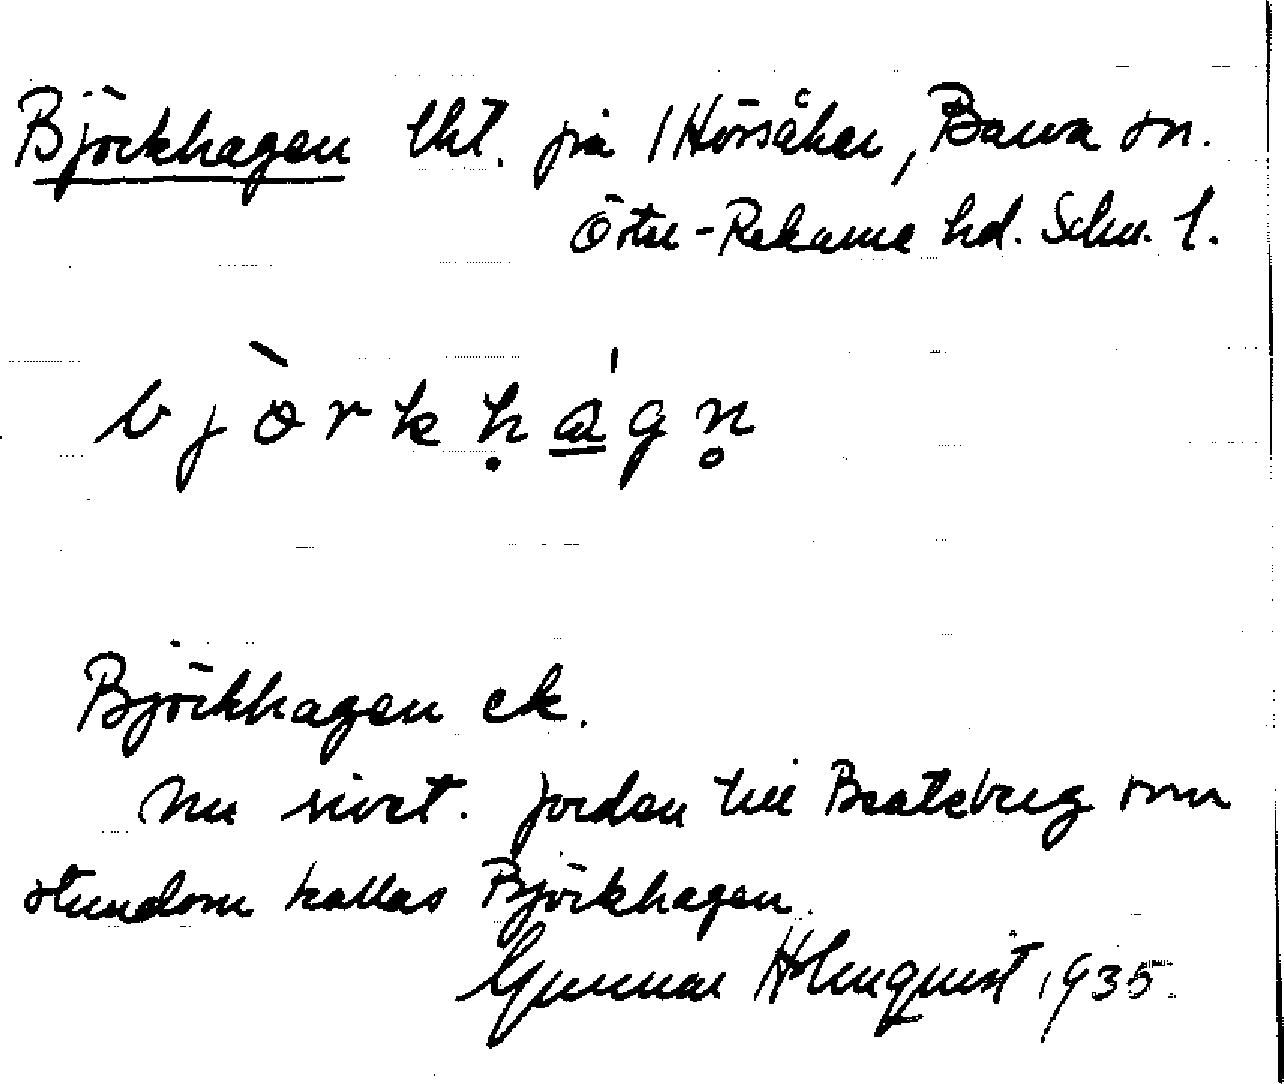 Björkhagen lht. på 1 Hörsåker, Barva sn.
Öster-Rekarne hd. Söhm. l.
bjòrkḥa̲̍gn̥
Björkhagen ek.
Nu rivet. Jorden till Beateberg som
stundom kallas Björkhagen.
Gunnar Holmquist 1935.